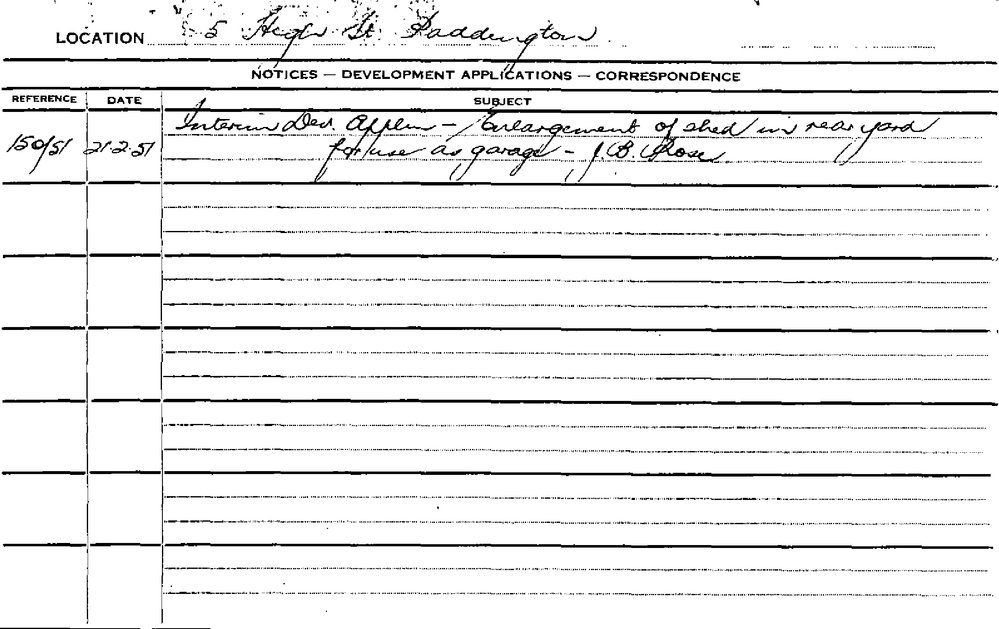 LOCATION 5 High St. Paddington
NOTICES — DEVELOPMENT APPLICATIONS — CORRESPONDENCE
REFERENCE DATE SUBJECT
Interim Dev. Applin — Enlargement of shed in rear yard
150/51 21·2·51 for use as garage – J. B. Rose